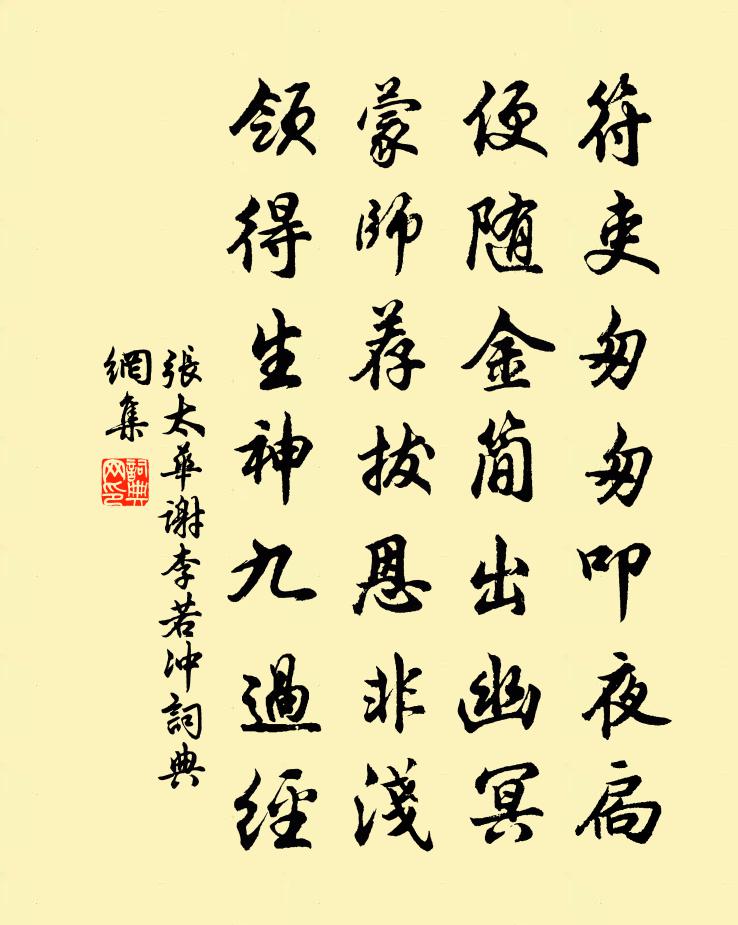 符吏匆匆叩夜扃
便随金简出幽冥
蒙师荐拔恩非淺
领得生神九過經
張太華谢李若冲詞典
網集
詞典網印